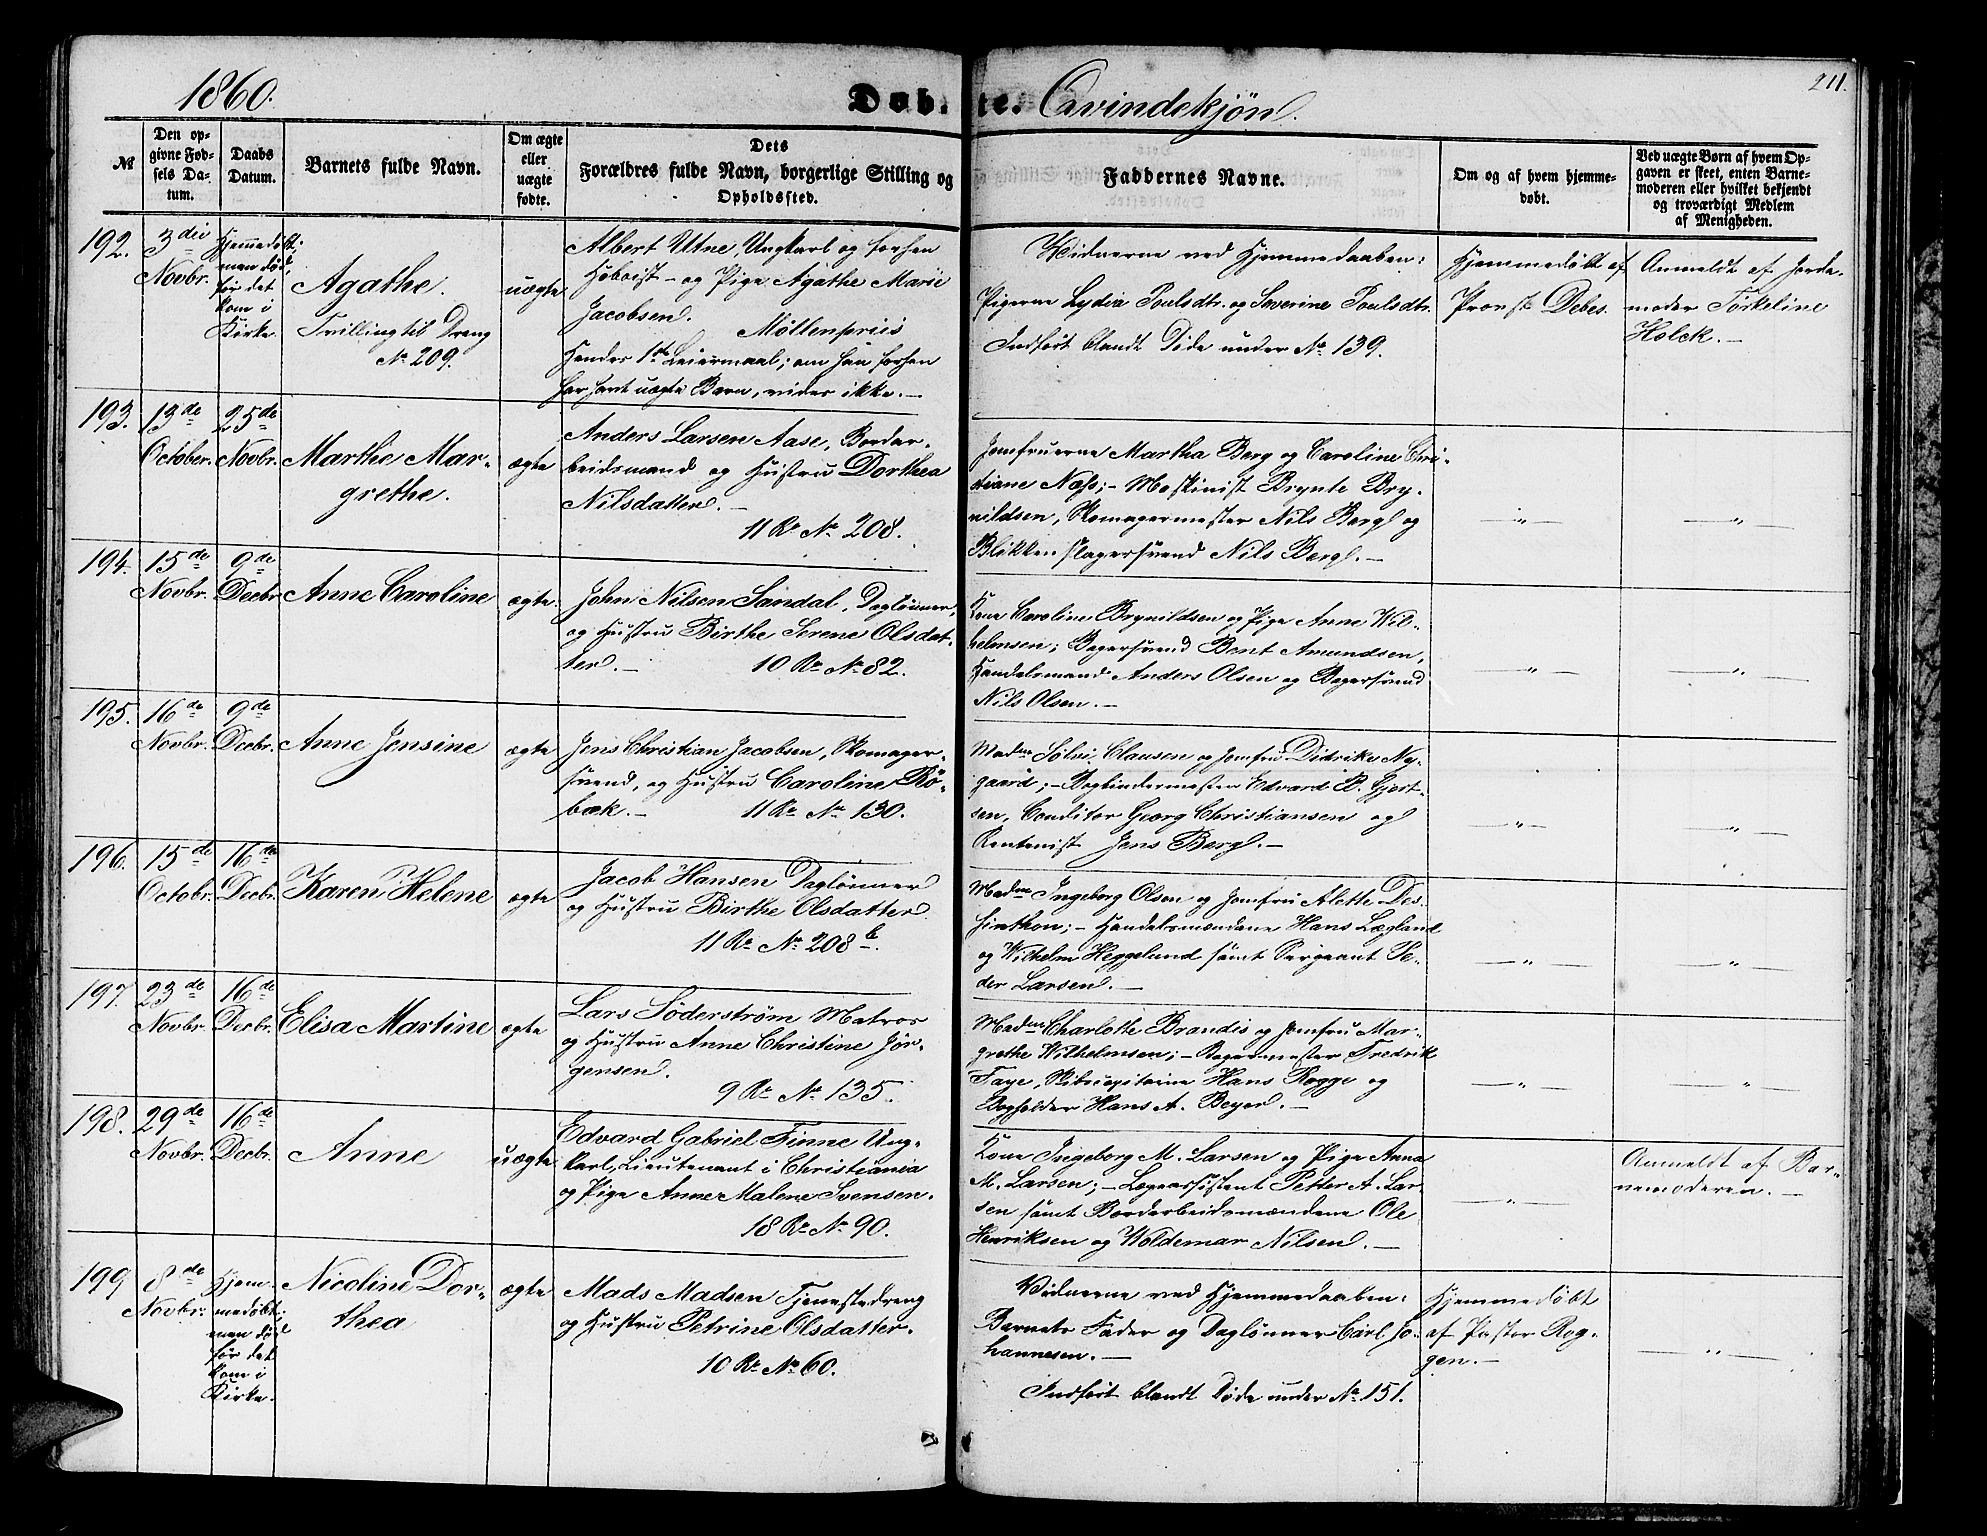 1860.
Døb. te. Qvindekjön.
211.
№
Den op-
givne Fød-
sels Da-
tum.
Daabs
Datum.
Barnets fulde Navn.
Om ægte
eller
uægte
fødte.
Dets
Forældres fulde Navn, borgerlige Stilling og
Opholdssted.
Faddernes Navne.
Om og af hvem hjemme-
døbt.
Ved uægte Børn af hvem Op-
gaven er skeet, enten Barne-
moderen eller hvilket bekjendt
og troværdigt Medlem
af Menigheden.
192.
3die
Novbr.
Hjemmedøbt,
men død,
før det
kom i
Kirke.
Agathe.
Tvilling til Dreng
№ 209.
uægte
Albert Utne, Ungkarl og forhen
Hoboist - og Pige Agathe Marie
Jacobsen.
Møllenpriis
Hendes 1ste Leiermaal; om han forhen
har havt uægte Barn, vides ikke.—
Vidnerne ved Hjemmedaaben:
Pigerne Lydia Poulsdtr. og Severine Poulsdtr.
Indført blandt Døde under № 139.
Hjemmedøbt af
Provst Debes.
Anmeldt af Jorde-
moder Törkeline
Holck.—
193.
13de
October.
25de
Novbr.
Marthe Mar-
grethe.
ægte
Anders Larsen Aase, Bordar-
beidsmand og Hustru Dorthea
Nilsdatter.—
11 Re № 208.
Jomfruerne Martha Berg og Caroline Chri-
stiane Næss;- Maskinist Brynte Bry-
nildsen, Skomagermester Nils Berg og
Blikkenslagersvend Nils Berg.—
—"—
—"—
194.
15de
Novbr.
9de
Decbr.
Anne Caroline
ægte.
John Nilsen Sandal, Daglönner,
og Hustru Birthe Serene Olsdat-
ter.—
10 Re № 82.
Kone Caroline Brynildsen og Pige Anne Wil-
helmsen; Bagersvend Bent Amundsen,
Handelsmand Anders Olsen og Bagersvend
Nils Olsen.—
—"—
—"—
195.
16de
Novbr.
9de
Decbr.
Anne Jensine
ægte
Jens Christian Jacobsen, Skomager-
svend, og Hustru Caroline Rö-
bæk.—
11 Re № 130.
Madme Sölvi Clausen og Jomfru Didrike Ny-
gaard;- Bogbindermester Edvard B. Gjert-
sen, Conditor Georg Christiansen og
Rentenist Jens Berg.—
—"—
—"—
196.
15de
Octobr.
16de
Decbr.
Karen Helene
ægte
Jacob Hansen Daglönner
og Hustru Birthe Olsdatter
11 Re № 208 b.
Madme Ingeborg Olsen og Jomfru Alette Des-
sinthon;- Handelsmændene Hans Lægland
og Wilhelm Heggelund samt Sergeant Pe-
der Larsen.—
—"—
—"—
197.
23de
Novbr.
16de
Decbr.
Elisa Martine
ægte
Lars Söderström Matros
og Hustru Anne Christine Jör-
gensen.
9 Re № 135.
Madme Charlotte Brandis og Jomfru Mar-
grethe Wilhelmsen;- Bagermester Fredrik
Faye, Skibscapitaine Hans Rogge og
Bogholder Hans A. Beyer.—
—"—
—"—
198.
29de
Novbr.
16de
Decbr.
Anne
uægte
Edvard Gabriel Finne Ung-
karl, Lieutenant i Christiania
og Pige Anne Malene Svensen.
18 Re № 90.
Kone Ingeborg M. Larsen og Pige Anna
M. Larsen;- Lægeassistent Petter A. Lar-
sen samt Bordarbeidsmændene Ole
Henriksen og Woldemar Nilsen.—
—"—
Anmeldt af Bar-
nemoderen.—
199
8de
Novbr:
Hjem-
medøbt,
men død
før det
kom i
Kirke.
Nicoline Dor-
thea
ægte
Mads Madsen Tjenestedreng
og Hustru Petrine Olsdatter.
10 Re № 60.
Vidnerne ved Hjemmedaaben:
Barnets Fader og Daglönner Carl Jo-
hannesen.—
Indført blandt Døde under № 151.
Hjemmedöbt
af Pastor Rog-
gen.—
—"—